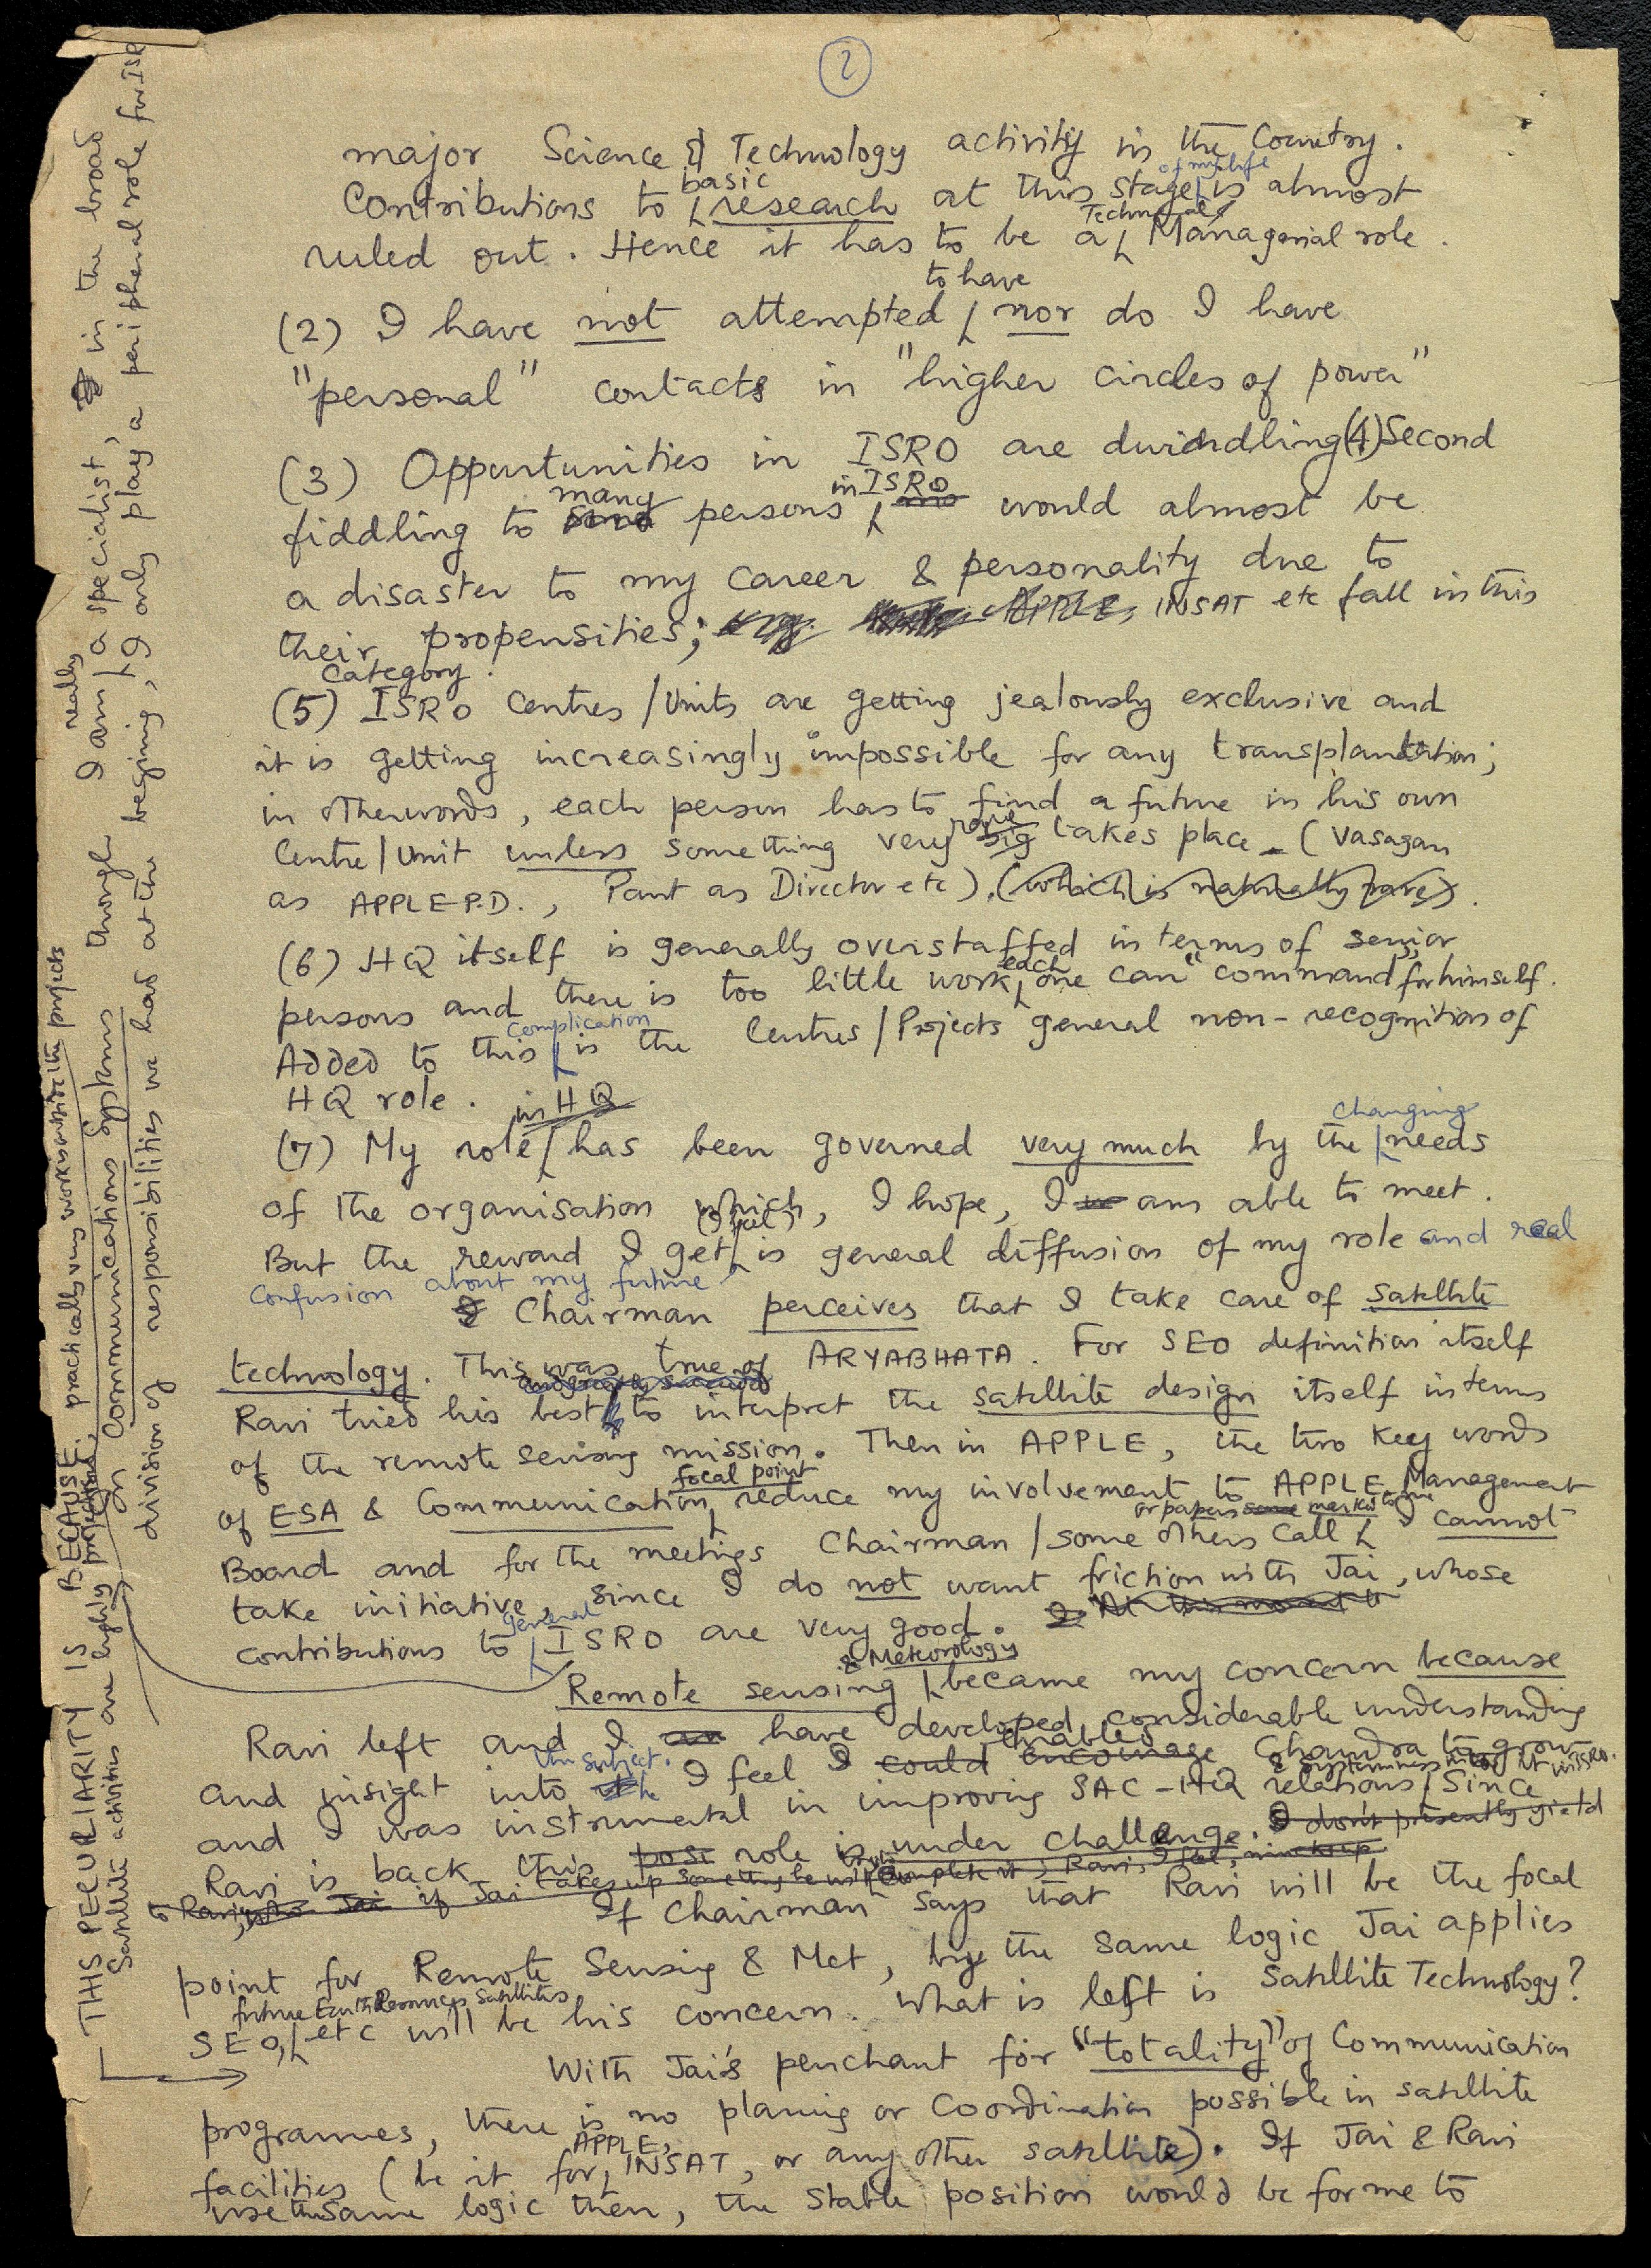 2
major Science & Technology activity in the Country.
of my life
basic
Contributions to research at this stage is almost
Technical
ruled out. Hence it has to be a Managerial role.
to have
(2) I have not attempted, nor do I have
"personal" contacts in "higher circles of power"
(3) Opportunities in ISRO are dwindling (4) Second
many in ISRO
fiddling to some persons would almost be
a disaster to my career & personality due to
their propensities; e.g. APPLE, INSAT etc fall in this
category.
(5) ISRO Centres/Units are getting jealously exclusive and
it is getting increasingly impossible for any transplantation;
in otherwords, each person has to find a future in his own
rare
Centre/Unit unless something very big takes place - (Vasagam
as APPLE P.D., Pant as Director etc). (which is naturally rare).
(6) HQ itself is generally overstaffed in terms of senior
each
persons and there is too little work, one can "command" for himself.
complication
Added to this is the Centres/Projects general non-recognition of
HQ role.
in HQ changing
(7) My role has been governed very much by the needs
of the organisation which, I hope, I am able to meet.
(I feel)
But the reward I get is general diffusion of my role and real
confusion about my future
Chairman perceives that I take care of satellite
technology. This was true of ARYABHATA. For SEO definition itself
Ravi tried his best to interpret the satellite design itself in terms
of the remote sensing mission. Then in APPLE, the two key words
focal point
of ESA & Communication, reduce my involvement to APPLE Management
or papers some marks to me
Board and for the meetings Chairman/some others call. I cannot
take initiative, since I do not want friction with Jai, whose
general
contributions to ISRO are very good. At this moment
& Meteorology
Remote sensing became my concern because
Ravi left and I have developed considerable understanding
the subject. enabled
and insight into the I feel I could encourage Chandra to grow
and I was instrumental in improving SAC-HQ relations Since
Ravi is back this role is under challenge. I don't presently yield
to Ravi, Jai if Jai takes up something he will complete it; Ravi, I feel,
If Chairman says that Ravi will be the focal
point for Remote Sensing & Met, by the same logic Jai applies
future Earth Resources Satellites
SEO, etc will be his concern. What is left is Satellite Technology?
With Jai's penchant for "totality" of Communication
programmes, there is no planning or coordination possible in satellite
APPLE,
facilities (be it for INSAT, or any other satellite). If Jai & Ravi
use the same logic then, the stable position would be for me to
THIS PECULIARITY IS BECAUSE: practically very work outside the projects
Satellite activities are highly projectised,
in Communications Systems though I am really a specialist, in the broad
division of responsibilities we had at the begining, I only play a peripheral role for ISR